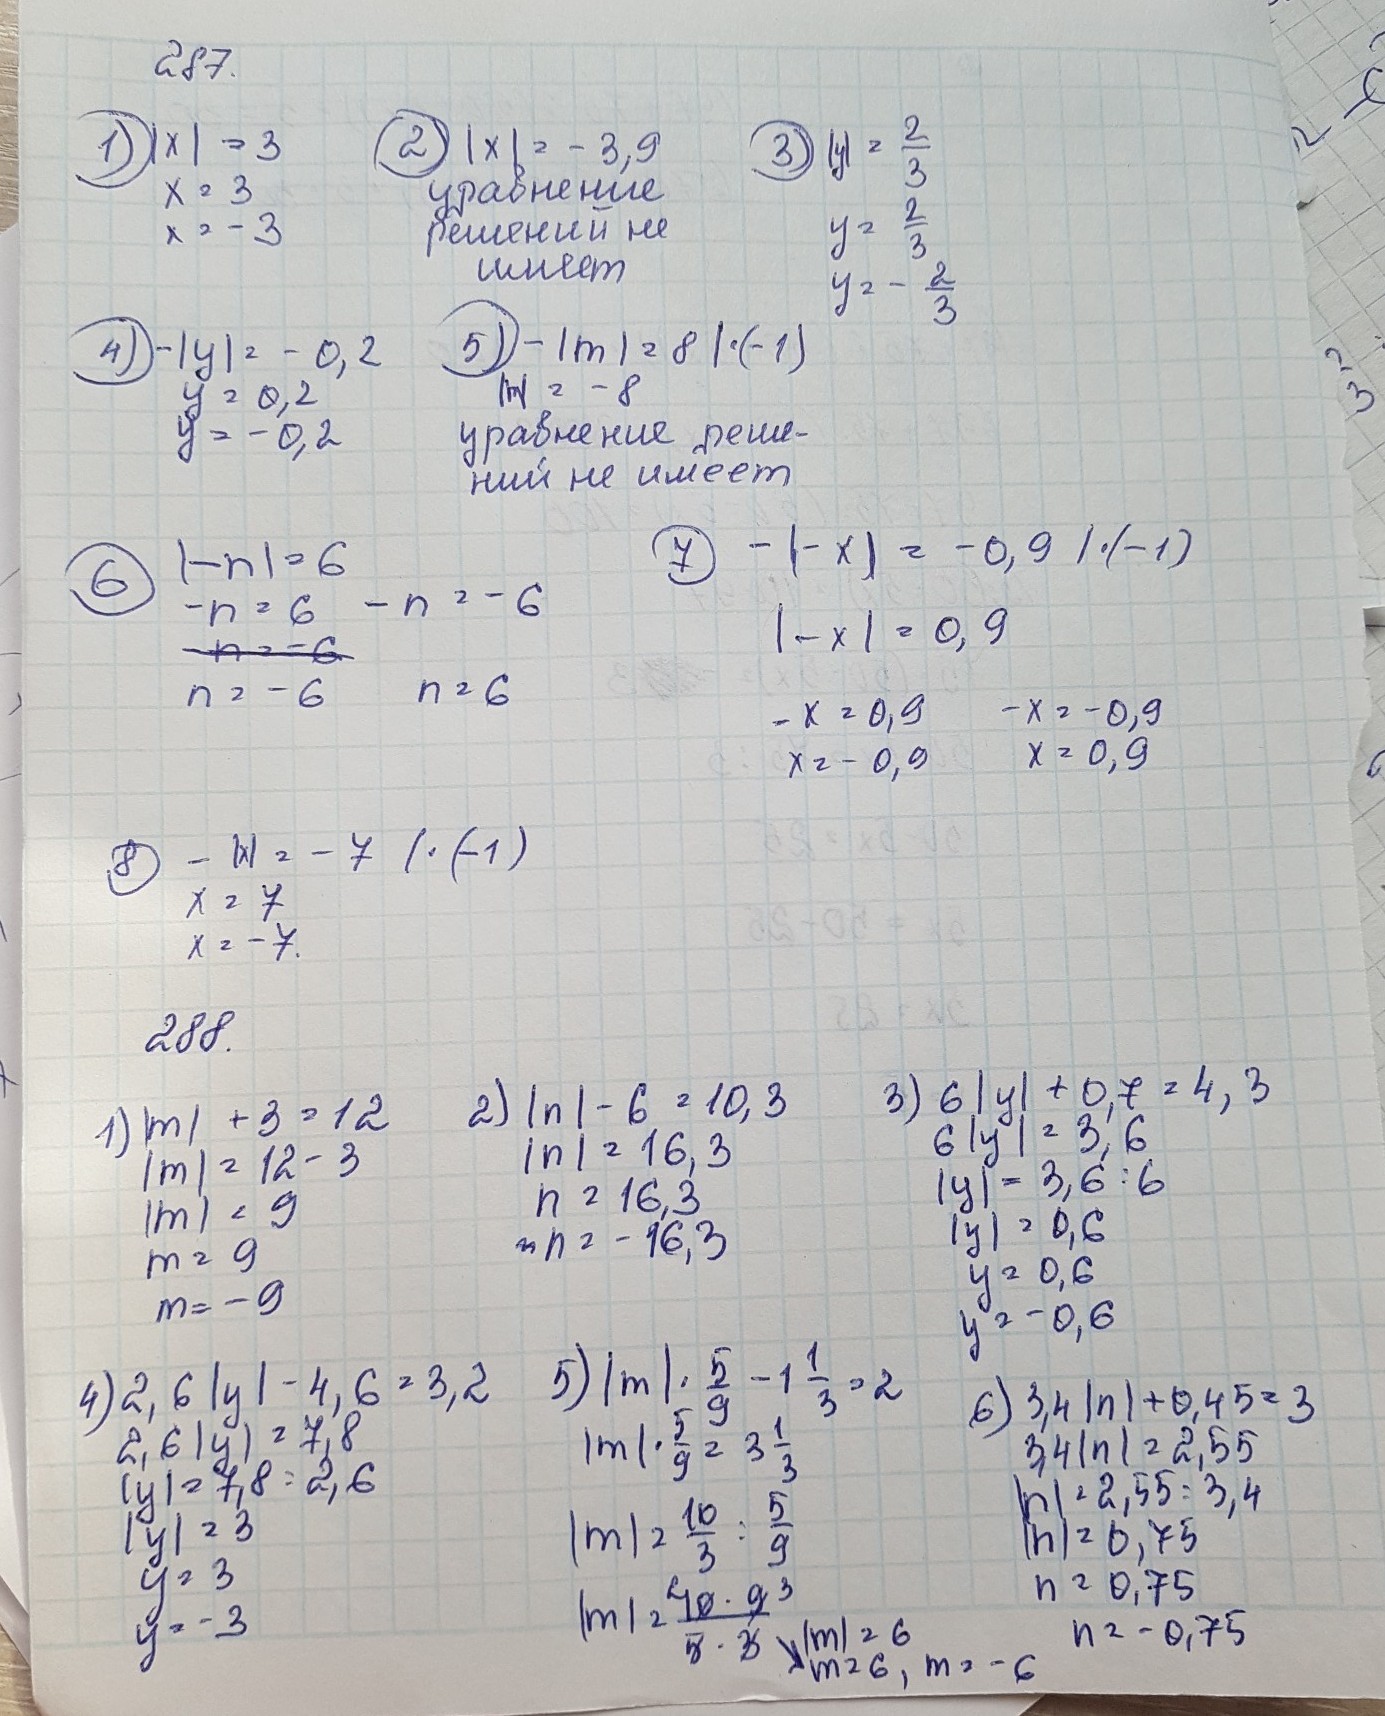 287.
1) |x| = 3
x = 3
x = -3
2) |x| = -3,9
уравнение
решений не
имеет
3) |y| = 2/3
y = 2/3
y = -2/3
4) -|y| = -0,2
y = 0,2
y = -0,2
5) -|m| = 8 |·(-1)
|m| = -8
уравнение реше-
ний не имеет
6 |-n| = 6
-n = 6 -n = -6
-n = -6
n = -6 n = 6
7 -|-x| = -0,9 |·(-1)
|-x| = 0,9
-x = 0,9 -x = -0,9
x = -0,9 x = 0,9
8 -|x| = -7 |·(-1)
x = 7
x = -7.
288.
1) |m| + 3 = 12
|m| = 12 - 3
|m| = 9
m = 9
m = -9
2) |n| - 6 = 10,3
|n| = 16,3
n = 16,3
n = -16,3
3) 6|y| + 0,7 = 4,3
6|y| = 3,6
|y| = 3,6 : 6
|y| = 0,6
y = 0,6
y = -0,6
4) 2,6|y| - 4,6 = 3,2
2,6|y| = 7,8
|y| = 7,8 : 2,6
|y| = 3
y = 3
y = -3
5) |m| · 5/9 - 1 1/3 = 2
|m| · 5/9 = 3 1/3
|m| = 10/3 : 5/9
|m| = 10 · 9 / 5 · 3
|m| = 6
m = 6, m = -6
6) 3,4|n| + 0,45 = 3
3,4|n| = 2,55
|n| = 2,55 : 3,4
|n| = 0,75
n = 0,75
n = -0,75